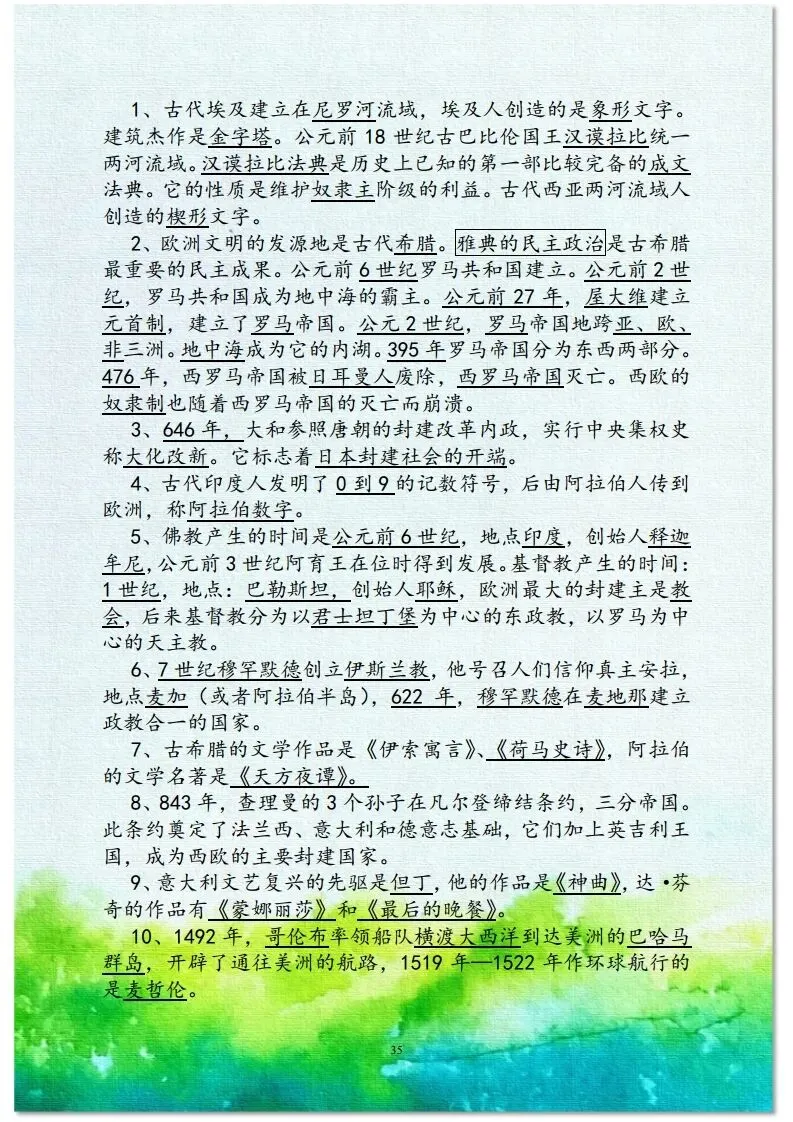 1、古代埃及建立在尼罗河流域，埃及人创造的是象形文字。
建筑杰作是金字塔。公元前 18 世纪古巴比伦国王汉谟拉比统一
两河流域。汉谟拉比法典是历史上已知的第一部比较完备的成文
法典。它的性质是维护奴隶主阶级的利益。古代西亚两河流域人
创造的楔形文字。
2、欧洲文明的发源地是古代希腊。雅典的民主政治是古希腊
最重要的民主成果。公元前 6 世纪罗马共和国建立。公元前 2 世
纪，罗马共和国成为地中海的霸主。公元前 27 年，屋大维建立
元首制，建立了罗马帝国。公元 2 世纪，罗马帝国地跨亚、欧、
非三洲。地中海成为它的内湖。395 年罗马帝国分为东西两部分。
476 年，西罗马帝国被日耳曼人废除，西罗马帝国灭亡。西欧的
奴隶制也随着西罗马帝国的灭亡而崩溃。
3、646 年，大和参照唐朝的封建改革内政，实行中央集权史
称大化改新。它标志着日本封建社会的开端。
4、古代印度人发明了 0 到 9 的记数符号，后由阿拉伯人传到
欧洲，称阿拉伯数字。
5、佛教产生的时间是公元前 6 世纪，地点印度，创始人释迦
牟尼，公元前 3 世纪阿育王在位时得到发展。基督教产生的时间：
1 世纪，地点：巴勒斯坦，创始人耶稣，欧洲最大的封建主是教
会，后来基督教分为以君士坦丁堡为中心的东政教，以罗马为中
心的天主教。
6、7 世纪穆罕默德创立伊斯兰教，他号召人们信仰真主安拉，
地点麦加（或者阿拉伯半岛），622 年，穆罕默德在麦地那建立
政教合一的国家。
7、古希腊的文学作品是《伊索寓言》、《荷马史诗》，阿拉伯
的文学名著是《天方夜谭》。
8、843 年，查理曼的 3 个孙子在凡尔登缔结条约，三分帝国。
此条约奠定了法兰西、意大利和德意志基础，它们加上英吉利王
国，成为西欧的主要封建国家。
9、意大利文艺复兴的先驱是但丁，他的作品是《神曲》，达·芬
奇的作品有《蒙娜丽莎》和《最后的晚餐》。
10、1492 年，哥伦布率领船队横渡大西洋到达美洲的巴哈马
群岛，开辟了通往美洲的航路，1519 年—1522 年作环球航行的
是麦哲伦。
35